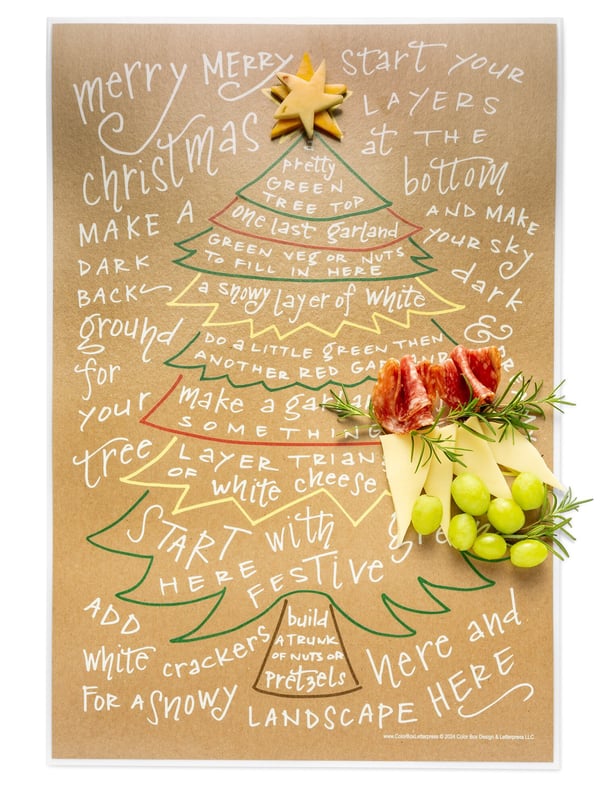 merry MERRY
christmas
start YOUR
LAYERS
at THE
bottom
AND MAKE
your sky
dark
&
MAKE A
DARK
BACK
ground
for
your
tree
pretty
GREEN
TREE TOP
one last garland
GREEN VEG OR NUTS
TO FILL IN HERE
a snowy layer of white
DO a LITTLE GREEN THEN
ANOTHER RED GARLAND
make a
SOMETHING
LAYER
OF white cheese
START with
HERE FESTIVE
build
A TRUNK
OF NUTS OR
Pretzels
ADD
white crackers
FOR A SNOWY
LANDSCAPE HERE
here and
www.ColorBoxLetterpress © 2024 Color Box Design & Letterpress LLC